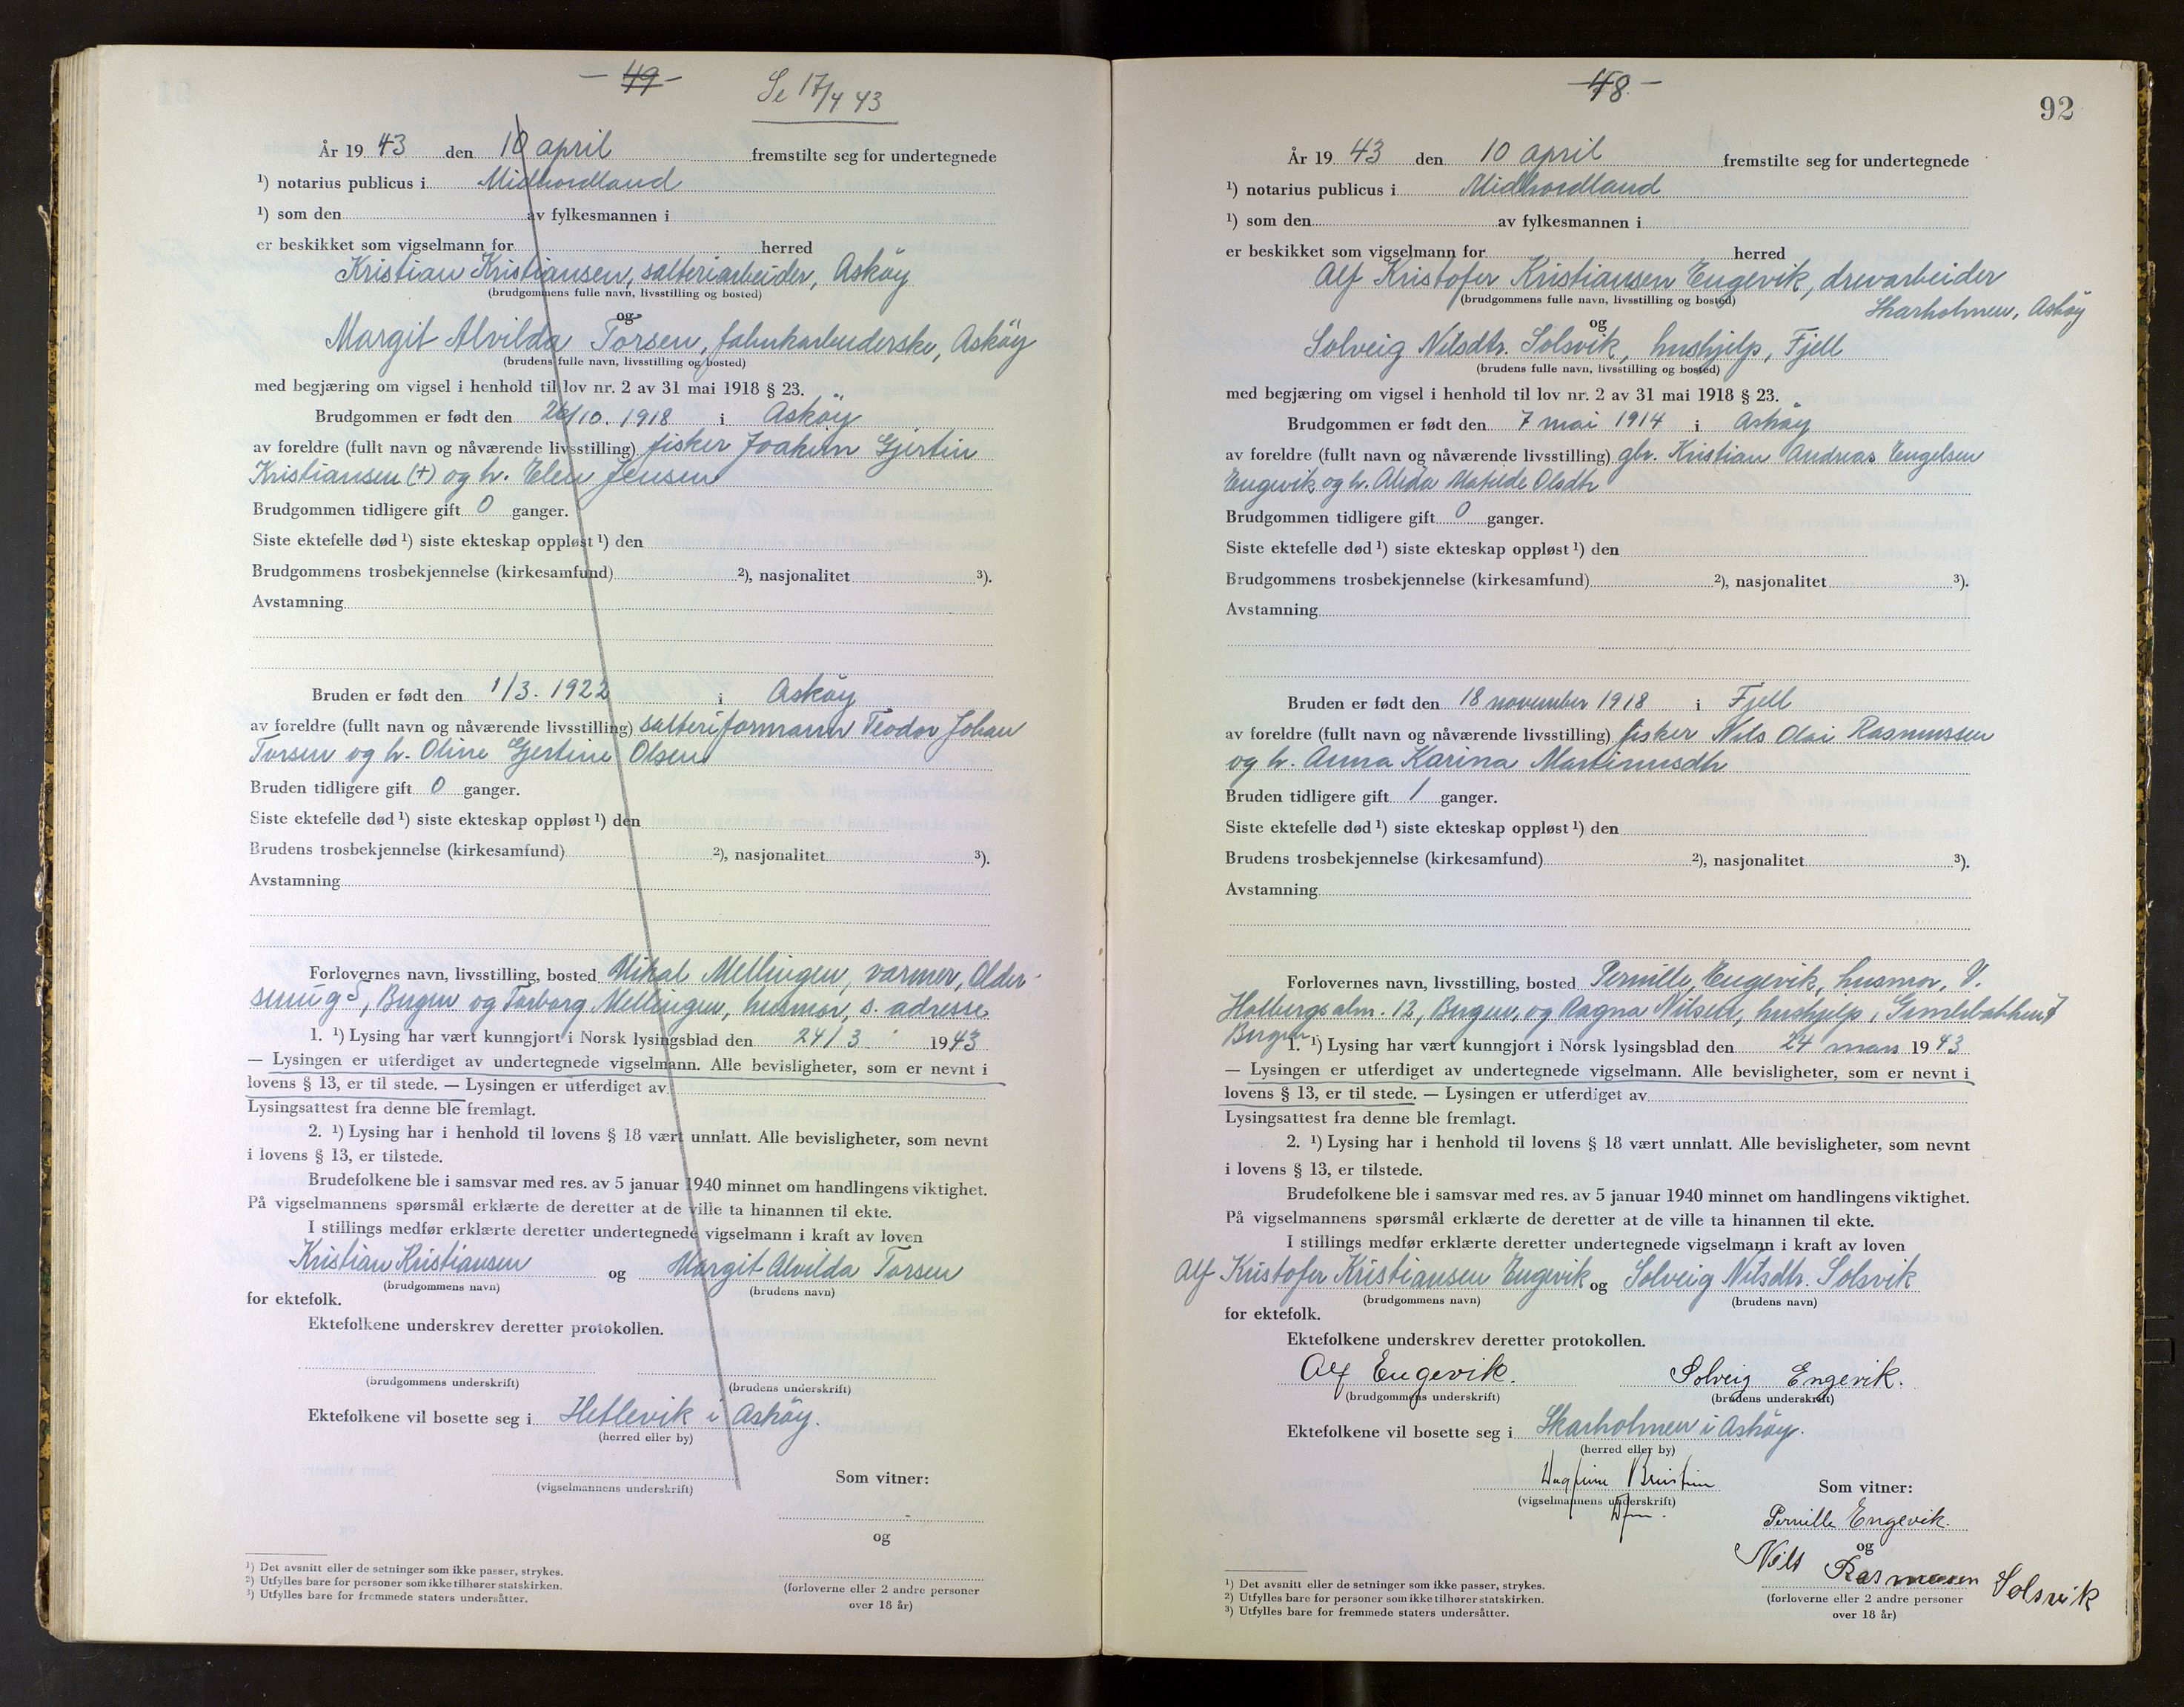 — 49 —
Se 17/4 43
År 19 43 den 10 april fremstilte seg for undertegnede
¹) notarius publicus i Midhordland
¹) som den av fylkesmannen i
er beskikket som vigselmann for herred
Kristian Kristiansen, salteriarbeider, Askøy
(brudgommens fulle navn, livsstilling og bosted)
og
Margit Alvilda Torsen, fabrikarbeiderske, Askøy
(brudens fulle navn, livsstilling og bosted)
med begjæring om vigsel i henhold til lov nr. 2 av 31 mai 1918 § 23.
Brudgommen er født den 26/10. 1918 i Askøy
av foreldre (fullt navn og nåværende livsstilling) fisker Joakim Gjertin
Kristiansen (+) og h. Elen Jensen
Brudgommen tidligere gift 0 ganger.
Siste ektefelle død ¹) siste ekteskap oppløst ¹) den
Brudgommens trosbekjennelse (kirkesamfund) ²), nasjonalitet ³).
Avstamning
Bruden er født den 1/3. 1922 i Askøy
av foreldre (fullt navn og nåværende livsstilling) salteriformann Teodor Johan
Torsen og h. Oline Gjertine Olsen
Bruden tidligere gift 0 ganger.
Siste ektefelle død ¹) siste ekteskap oppløst ¹) den
Brudens trosbekjennelse (kirkesamfund) ²), nasjonalitet ³).
Avstamning
Forlovernes navn, livsstilling, bosted Mikal Mellingen, varmer, Older-
smug 5, Bergen og Torborg Mellingen, husmor, s. adresse
1. ¹) Lysing har vært kunngjort i Norsk lysingsblad den 24/3 1943
— Lysingen er utferdiget av undertegnede vigselmann. Alle bevisligheter, som er nevnt i
lovens § 13, er til stede. — Lysingen er utferdiget av
Lysingsattest fra denne ble fremlagt.
2. ¹) Lysing har i henhold til lovens § 18 vært unnlatt. Alle bevisligheter, som nevnt
i lovens § 13, er tilstede.
Brudefolkene ble i samsvar med res. av 5 januar 1940 minnet om handlingens viktighet.
På vigselmannens spørsmål erklærte de deretter at de ville ta hinannen til ekte.
I stillings medfør erklærte deretter undertegnede vigselmann i kraft av loven
Kristian Kristiansen og Margit Alvilda Torsen
(brudgommens navn) (brudens navn)
for ektefolk.
Ektefolkene underskrev deretter protokollen.
(brudgommens underskrift) (brudens underskrift)
Ektefolkene vil bosette seg i Hetlevik i Askøy.
(herred eller by)
Som vitner:
(vigselmannens underskrift)
og
(forloverne eller 2 andre personer
over 18 år)
¹) Det avsnitt eller de setninger som ikke passer, strykes.
²) Utfylles bare for personer som ikke tilhører statskirken.
³) Utfylles bare for fremmede staters undersåtter.
— 48 —
92
År 19 43 den 10 april fremstilte seg for undertegnede
¹) notarius publicus i Midhordland
¹) som den av fylkesmannen i
er beskikket som vigselmann for herred
Alf Kristofer Kristiansen Engevik, drevarbeider
(brudgommens fulle navn, livsstilling og bosted)
Skarholmen, Askøy
og
Solveig Nilsdtr. Solsvik, hushjelp, Fjell
(brudens fulle navn, livsstilling og bosted)
med begjæring om vigsel i henhold til lov nr. 2 av 31 mai 1918 § 23.
Brudgommen er født den 7 mai 1914 i Askøy
av foreldre (fullt navn og nåværende livsstilling) gbr. Kristian Andreas Engelsen
Engevik og h. Alida Matilde Olsdtr
Brudgommen tidligere gift 0 ganger.
Siste ektefelle død ¹) siste ekteskap oppløst ¹) den
Brudgommens trosbekjennelse (kirkesamfund) ²), nasjonalitet ³).
Avstamning
Bruden er født den 18 november 1918 i Fjell
av foreldre (fullt navn og nåværende livsstilling) fisker Nils Olai Rasmussen
og h. Anna Karina Martinusdtr
Bruden tidligere gift 1 ganger.
Siste ektefelle død ¹) siste ekteskap oppløst ¹) den
Brudens trosbekjennelse (kirkesamfund) ²), nasjonalitet ³).
Avstamning
Forlovernes navn, livsstilling, bosted Pernille Engevik, husmor, V.
Holbergsalm. 12, Bergen, og Ragna Nilsen, hushjelp,
Bergen
1. ¹) Lysing har vært kunngjort i Norsk lysingsblad den 24 mars 1943
— Lysingen er utferdiget av undertegnede vigselmann. Alle bevisligheter, som er nevnt i
lovens § 13, er til stede. — Lysingen er utferdiget av
Lysingsattest fra denne ble fremlagt.
2. ¹) Lysing har i henhold til lovens § 18 vært unnlatt. Alle bevisligheter, som nevnt
i lovens § 13, er tilstede.
Brudefolkene ble i samsvar med res. av 5 januar 1940 minnet om handlingens viktighet.
På vigselmannens spørsmål erklærte de deretter at de ville ta hinannen til ekte.
I stillings medfør erklærte deretter undertegnede vigselmann i kraft av loven
Alf Kristofer Kristiansen Engevik og Solveig Nilsdtr. Solsvik
(brudgommens navn) (brudens navn)
for ektefolk.
Ektefolkene underskrev deretter protokollen.
Alf Engevik. Solveig Engevik.
(brudgommens underskrift) (brudens underskrift)
Ektefolkene vil bosette seg i Skarholmen i Askøy.
(herred eller by)
Som vitner:
(vigselmannens underskrift)
Pernille Engevik.
og
Nils Rasmussen Solsvik
(forloverne eller 2 andre personer
over 18 år)
¹) Det avsnitt eller de setninger som ikke passer, strykes.
²) Utfylles bare for personer som ikke tilhører statskirken.
³) Utfylles bare for fremmede staters undersåtter.